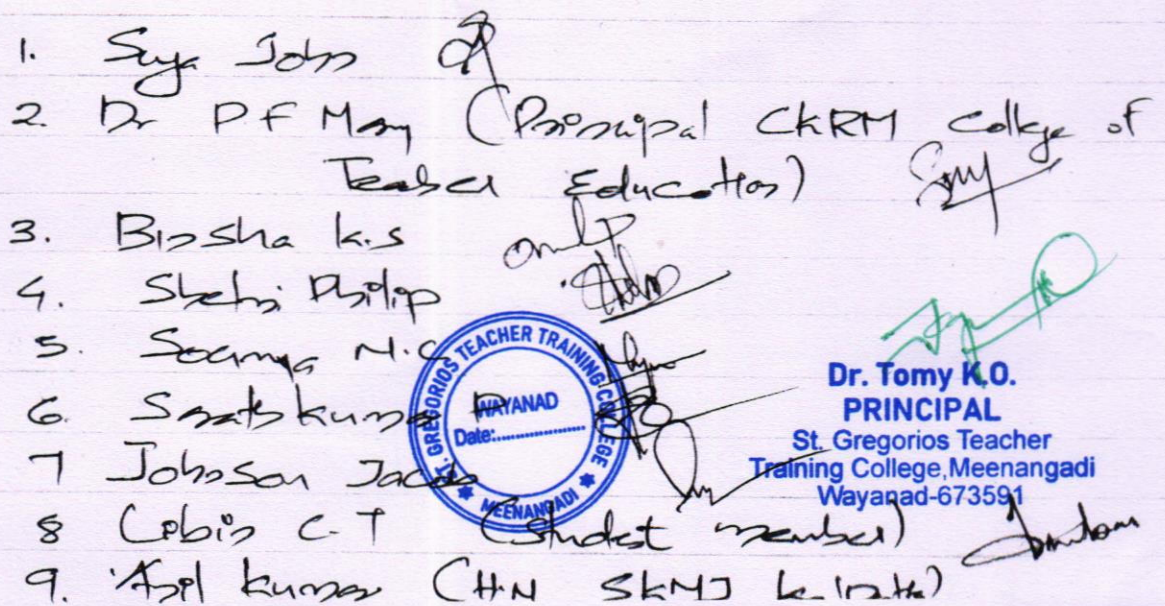 1. Suja John
2. Dr P.F Mary (Principal CKRM College of
Teacher Education)
3. Binsha K.S
4. Shebi Philip
5. Soumya N.C
6. Sarath kumar
7 Johnson Jacob
8 Lebin C.T (Student member)
9. Anil kumar (HM SKMJ Kalpetta)
ST. GREGORIOS TEACHER TRAINING COLLEGE
WAYANAD
Date:......................
MEENANGADI
Dr. Tomy K.O.
PRINCIPAL
St. Gregorios Teacher
Training College,Meenangadi
Wayanad-673591